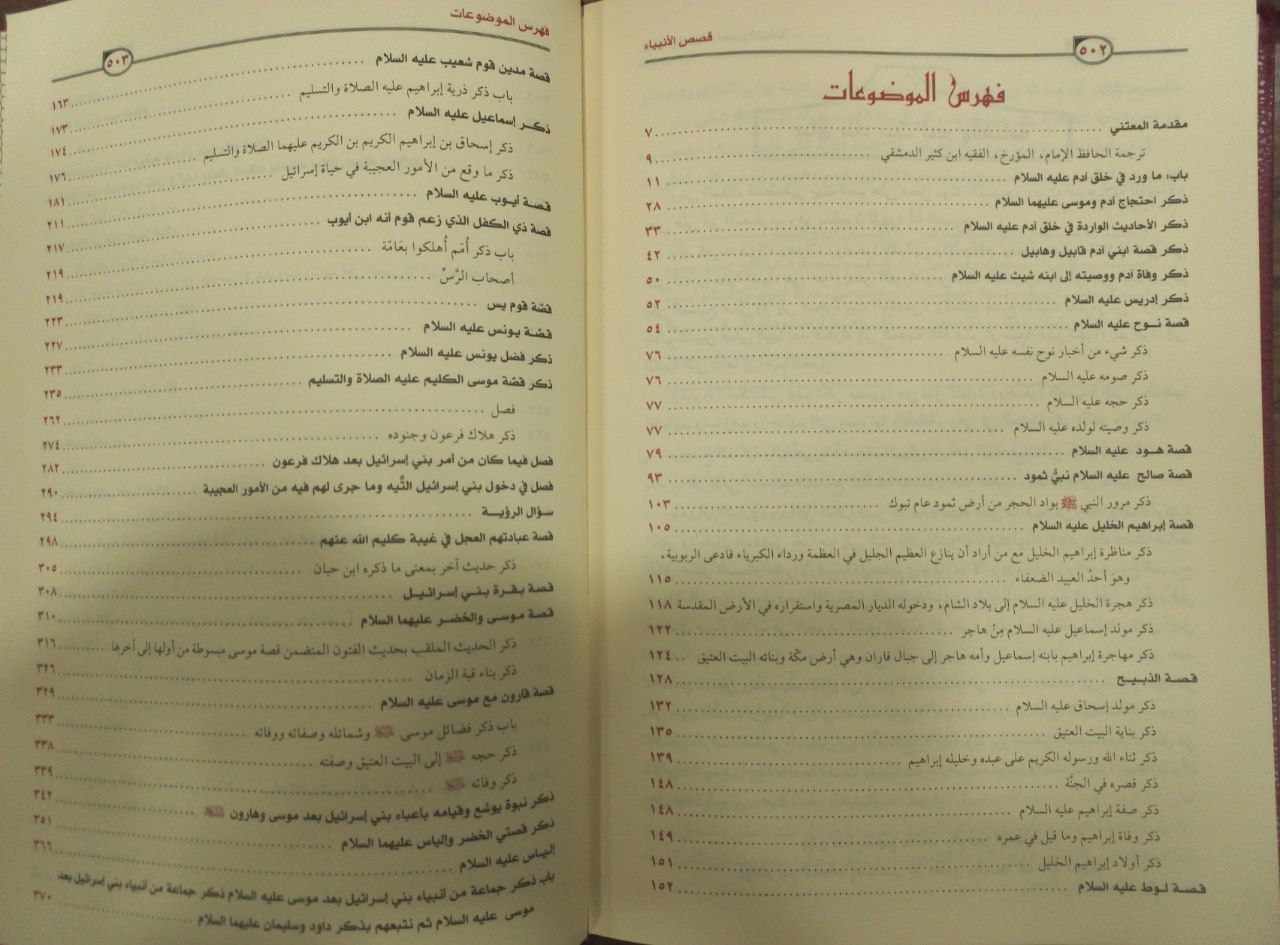 قصص الأنبياء
٥٠٢
فهرس الموضوعات
مقدمة المعتني ٧
ترجمة الحافظ الإمام، المؤرخ، الفقيه ابن كثير الدمشقي ٩
باب: ما ورد في خلق آدم عليه السلام ١١
ذكر احتجاج آدم وموسى عليهما السلام ٢٨
ذكر الأحاديث الواردة في خلق آدم عليه السلام ٣٣
ذكر قصة ابني آدم قابيل وهابيل ٤٢
ذكر وفاة آدم ووصيته إلى ابنه شيث عليه السلام ٥٠
ذكر إدريس عليه السلام ٥٢
قصة نوح عليه السلام ٥٤
ذكر شيء من أخبار نوح نفسه عليه السلام ٧٦
ذكر صومه عليه السلام ٧٦
ذكر حجه عليه السلام ٧٧
ذكر وصيته لولده عليه السلام ٧٧
قصة هود عليه السلام ٧٩
قصة صالح عليه السلام نبيُّ ثمود ٩٣
ذكر مرور النبي ﷺ بواد الحجر من أرض ثمود عام تبوك ١٠٣
قصة إبراهيم الخليل عليه السلام ١٠٥
ذكر مناظرة إبراهيم الخليل مع من أراد أن ينازع العظيم الجليل في العظمة ورداء الكبرياء فادعى الربوبية،
وهو أحدُ العبيد الضعفاء ١١٥
ذكر هجرة الخليل عليه السلام إلى بلاد الشام، ودخوله الديار المصرية واستقراره في الأرض المقدسة ١١٨
ذكر مولد إسماعيل عليه السلام مِنْ هاجر ١٢٢
ذكر مهاجرة إبراهيم بابنه إسماعيل وأمه هاجر إلى جبال فاران وهي أرض مكّة وبنائه البيت العتيق ١٢٤
قصة الذبيح ١٢٨
ذكر مولد إسحاق عليه السلام ١٣٢
ذكر بناية البيت العتيق ١٣٥
ذكر ثناء الله ورسوله الكريم على عبده وخليله إبراهيم ١٣٩
ذكر قصره في الجنَّة ١٤٨
ذكر صفة إبراهيم عليه السلام ١٤٨
ذكر وفاة إبراهيم وما قيل في عمره ١٤٩
ذكر أولاد إبراهيم الخليل ١٥١
قصة لوط عليه السلام ١٥٢
فهرس الموضوعات
٥٠٣
قصة مدين قوم شعيب عليه السلام ١٦٣
باب ذكر ذرية إبراهيم عليه الصلاة والتسليم ١٧٣
ذكر إسماعيل عليه السلام ١٧٤
ذكر إسحاق بن إبراهيم الكريم بن الكريم عليهما الصلاة والتسليم ١٧٦
ذكر ما وقع من الأمور العجيبة في حياة إسرائيل ١٨١
قصة أيوب عليه السلام ٢١١
قصة ذي الكفل الذي زعم قوم أنه ابن أيوب ٢١٧
باب ذكر أُمَم أُهلكوا بعَامّة ٢١٩
أصحاب الرَّسِّ ٢١٩
قصّة قوم يس ٢٢٣
قصّة يونس عليه السلام ٢٢٧
ذكر فضل يونس عليه السلام ٢٣٣
ذكر قصّة موسى الكليم عليه الصلاة والتسليم ٢٣٥
فصل ٢٦٢
ذكر هلاك فرعون وجنوده ٢٧٤
فصل فيما كان من أمر بني إسرائيل بعد هلاك فرعون ٢٨٢
فصل في دخول بني إسرائيل التِّيه وما جرى لهم فيه من الأمور العجيبة ٢٩٠
سؤال الرؤية ٢٩٤
قصة عبادتهم العجل في غيبة كليم الله عنهم ٢٩٨
ذكر حديث آخر بمعنى ما ذكره ابن حبان ٣٠٥
قصة بقرة بني إسرائيل ٣٠٨
قصة موسى والخضر عليهما السلام ٣١٠
ذكر الحديث الملقب بحديث الفتون المتضمن قصة موسى مبسوطة من أولها إلى أخرها ٣١٦
ذكر بناء قبة الزمان ٣٢٦
قصة قارون مع موسى عليه السلام ٣٢٩
باب ذكر فضائل موسى ﷺ وشمائله وصفاته ووفاته ٣٣٣
ذكر حجه ﷺ إلى البيت العتيق وصفته ٣٣٨
ذكر وفاته ﷺ ٣٣٩
ذكر نبوة يوشع وقيامه بأعباء بني إسرائيل بعد موسى وهارون ﷺ ٣٤٢
ذكر قصتي الخضر وإلياس عليهما السلام ٣٥١
إلياس عليه السلام ٣٦٦
باب ذكر جماعة من أنبياء بني إسرائيل بعد موسى عليه السلام ذكر جماعة من أنبياء بني إسرائيل بعد
موسى عليه السلام ثم نتبعهم بذكر داود وسليمان عليهما السلام ٣٧٠